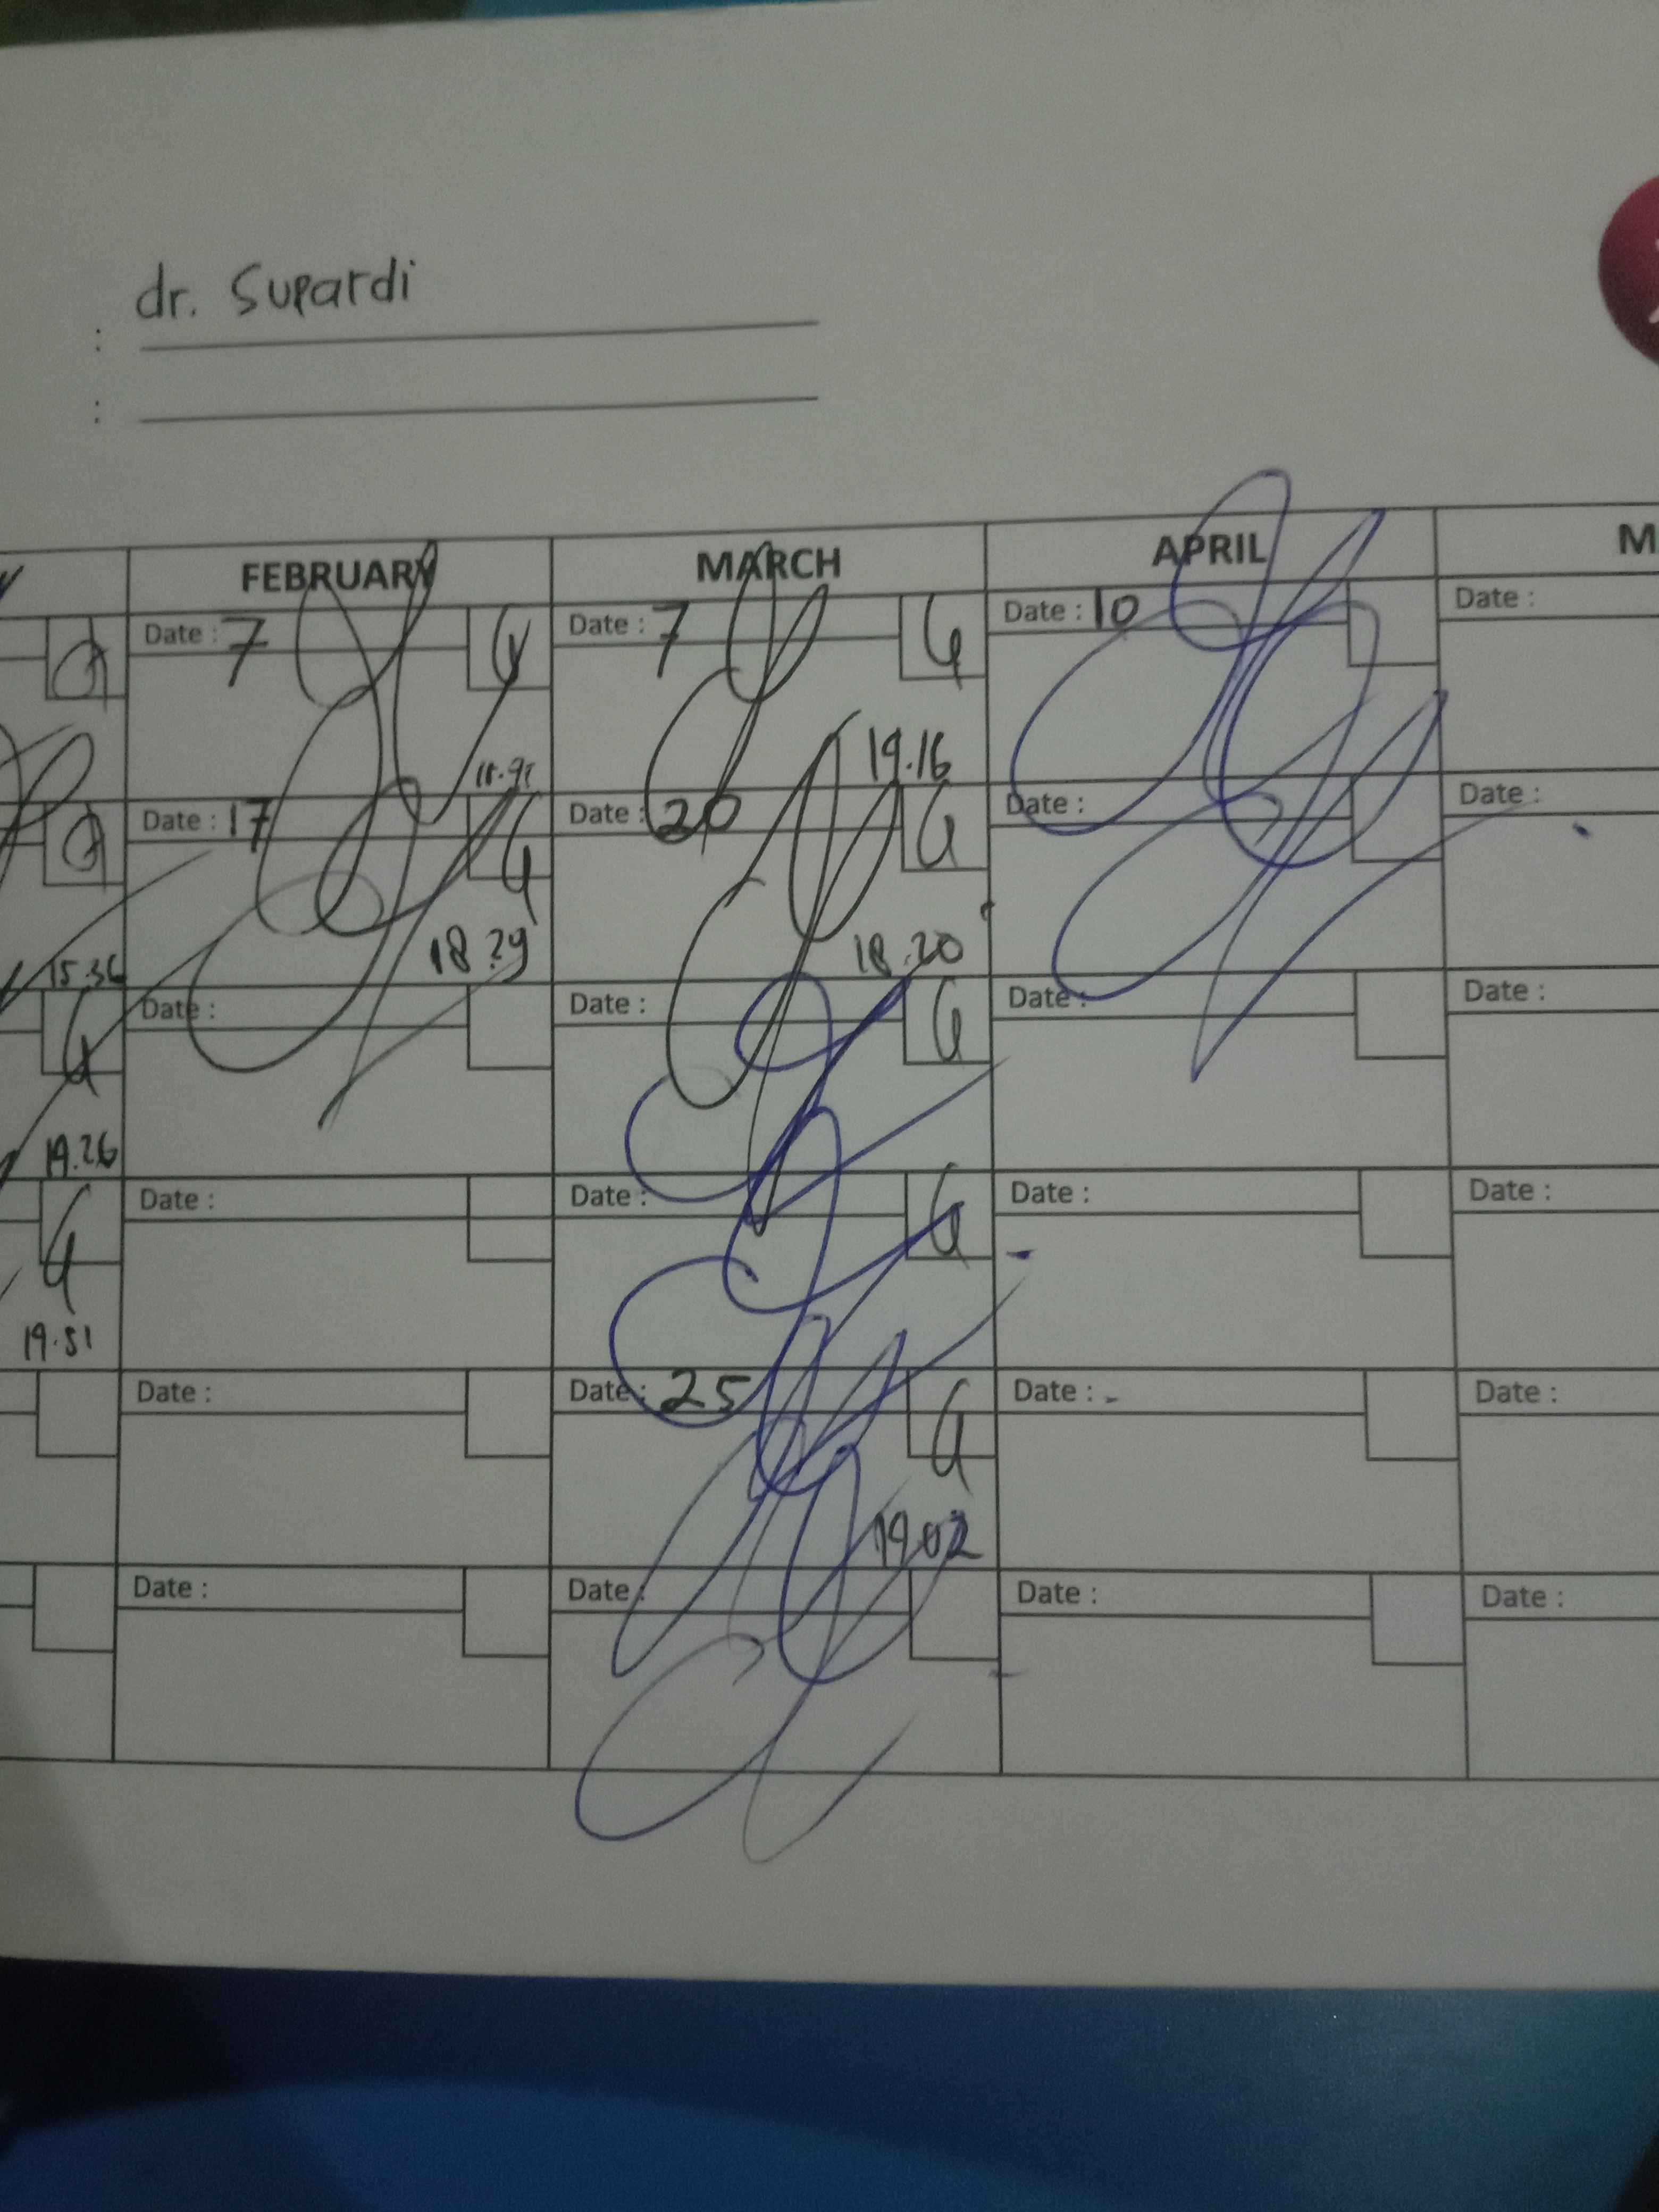 : dr. Supardi
:
FEBRUARY MARCH APRIL M
Date : 7 Date : 7 Date : 10 Date :
19.16
Date : 17 Date : 20 Date : Date :
15.36 18.29 18.20
Date : Date : Date : Date :
19.26
Date : Date : Date : Date :
19.51
Date : Date : 25 Date : - Date :
19.02
Date : Date : Date : Date :